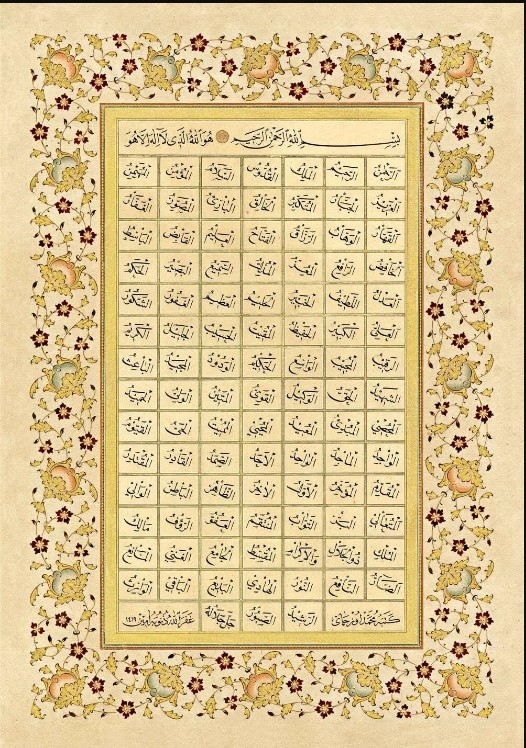 بسم الله الرحمن الرحيم هو الله الذي لا اله الا هو
الرحمن الرحيم الملك القدوس السلام المؤمن المهيمن
العزيز الجبار المتكبر الخالق البارئ المصور الغفار
القهار الوهاب الرزاق الفتاح العليم القابض الباسط
الخافض الرافع المعز المذل السميع البصير الحكم
العدل اللطيف الخبير الحليم العظيم الغفور الشكور
العلي الكبير الحفيظ المقيت الحسيب الجليل الكريم
الرقيب المجيب الواسع الحكيم الودود المجيد الباعث
الشهيد الحق الوكيل القوي المتين الولي الحميد
المحصي المبدئ المعيد المحيي المميت الحي القيوم
الواجد الماجد الواحد الاحد الصمد القادر المقتدر
المقدم المؤخر الاول الاخر الظاهر الباطن الوالي
المتعالي البر التواب المنتقم العفو الرؤف مالك
الملك ذو الجلال والاكرام المقسط الجامع الغني المانع
الضار النافع النور الهادي البديع الباقي الوارث
كتبه محمد اوزجاي الرشيد الصبور جل جلاله غفر الله ذنوبه امين ١٤١٩